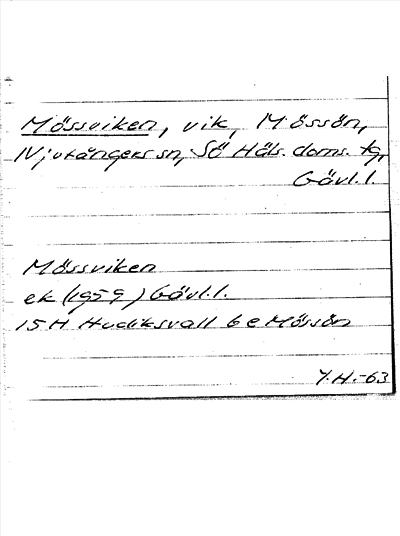 Mössviken, vik, Mössön,
Njutångers sn, Sö Häls. doms. tg,
Gävl.l.
Mössviken
ek (1959) Gävl.l.
15H Hudiksvall 6 e Mössön
Y.H.-63